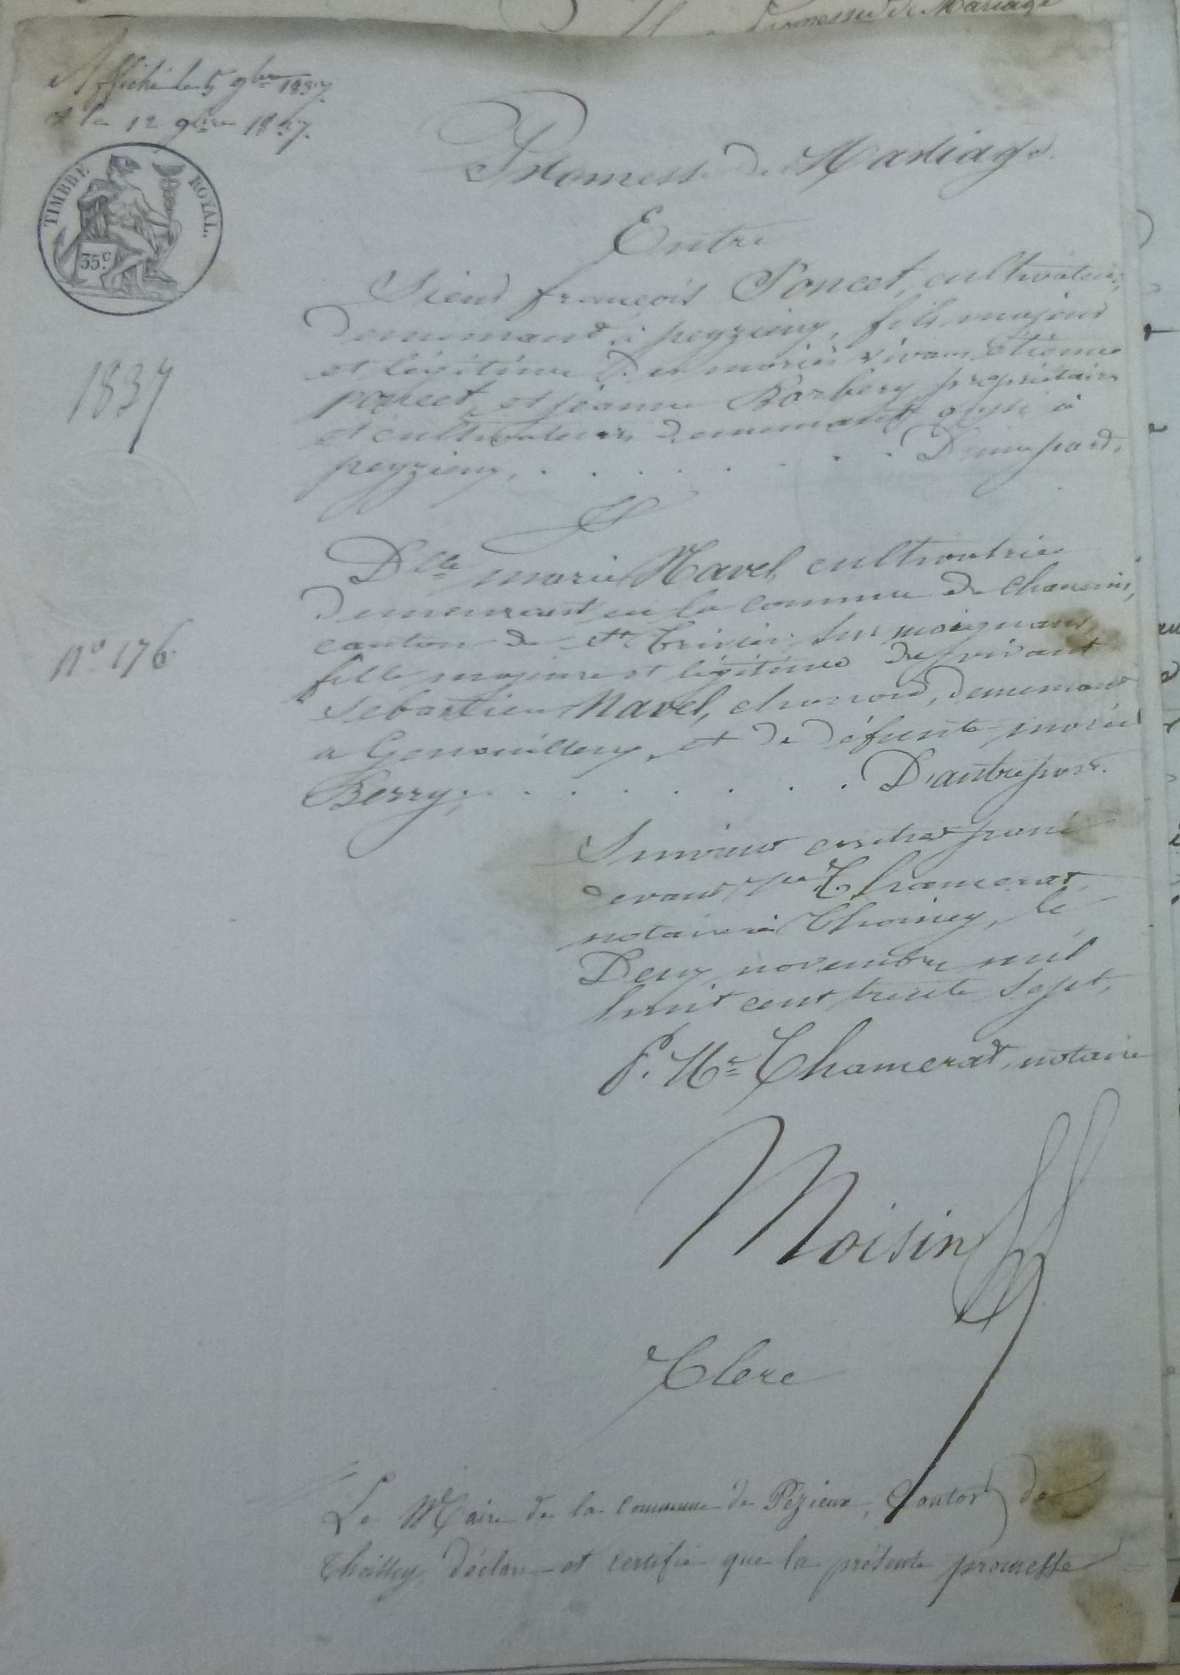 Promesse de Mariage
Affiché le 5 9bre 1837
et le 12 9bre 1837.
TIMBRE ROYAL.
35 c.
1837
n.o 176.
Promesse de Mariage.
Entre
Sieur françois Poncet, cultivateur,
demeurant à peyzieux, fils majeur
et légitime des mariés vivans étienne
poncet et jeanne Barbery propriétaires
et cultivateurs demeurant aussi à
peyzieux, . . . . . . . . D'une part.
Et
Dlle marie Navel, cultivatrice
demeurant en la commune de chaneins,
canton de st. Trivier sur moignans,
fille majeure et légitime de vivant
Sebastien Navel, charron, demeurant
a Genouilleux, et de défunte marie
Berry; . . . . . . . D'autre part.
Suivant contrat passé
devant Me Thamerat,
notaire à Thoissey, le
Deux novembre mil
huit cent trente sept,
P. Mr. Thamerat, notaire
Moisin
Clerc
Le Maire de la commune de Pézieux, Canton de
Thoissey, déclare et certifie que la présente promesse